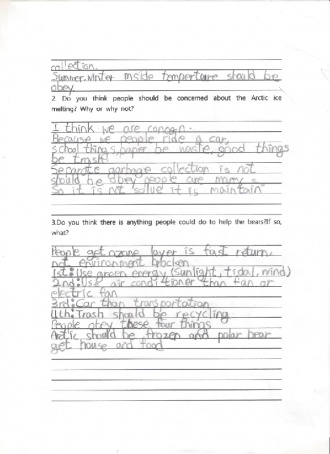 collection.
Summer, winter inside temperture should be
obey
2. Do you think people should be concerned about the Arctic ice
melting? Why or why not?
I think we are concern.
Because we people ride a car,
school things, paper be waste, good things
be trash!
Separate garbage collection is not
should be obey people are many
So it is not solve it is maintain
3.Do you think there is anything people could do to help the bears?If so,
what?
People get ozone layer is fast return,
not environment brocken
1st: Use green energy (sunlight, tidal, wind)
2nd: Use air conditioner than fan or
electric fan
3rd: Car than transportation
4th: Trash should be recycling
People obey these four things
Arctic should be frozen and polar bear
get house and food